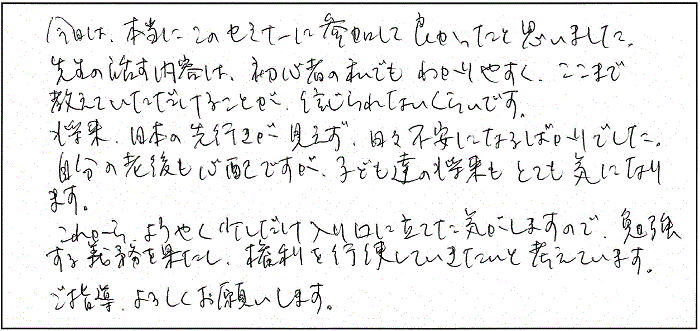 今日は、本当にこのセミナーに参加して良かったと思いました。
先生の話す内容は、初心者の私でもわかりやすく、ここまで
教えていただけることが、信じられないくらいです。
将来、日本の先行きが見えず、日々不安になるばかりでした。
自分の老後も心配ですが、子ども達の将来もとても気になり
ます。
これから、ようやく少しだけ入り口に立てた気がしますので、勉強
する義務を果たし、権利を行使していきたいと考えています。
ご指導、よろしくお願いします。